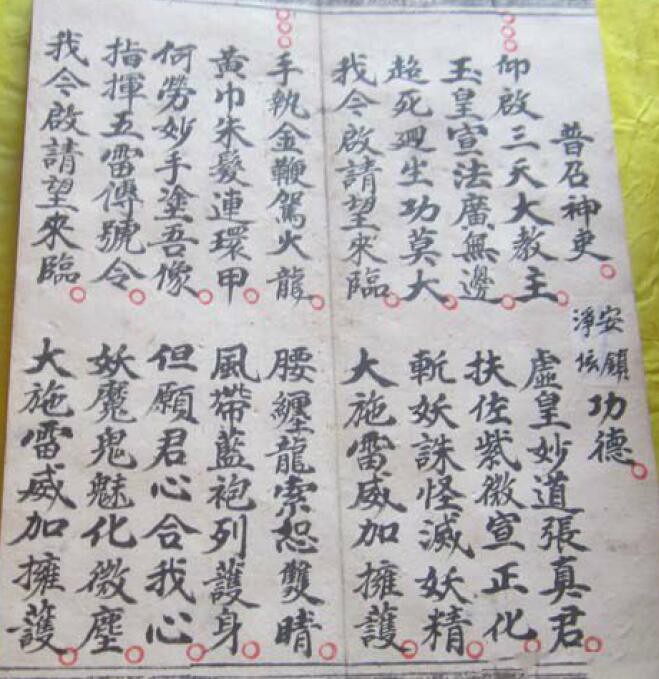 普召神吏 安鎮 淨坛 功德
仰啟三天大教主 虛皇妙道張真君
玉皇宣法廣無邊 扶佐紫微宣正化
超死迴生功莫大 斬妖誅怪滅妖精
我今啟請望來臨 大施雷威加擁護
手執金鞭駕火龍 腰纏龍索恕雙晴
黃巾朱髮連環甲 風帶藍袍列護身
何勞妙手塗吾像 但願君心合我心
指揮五雷傳號令 妖魔鬼魅化微塵
我今啟請望來臨 大施雷威加擁護